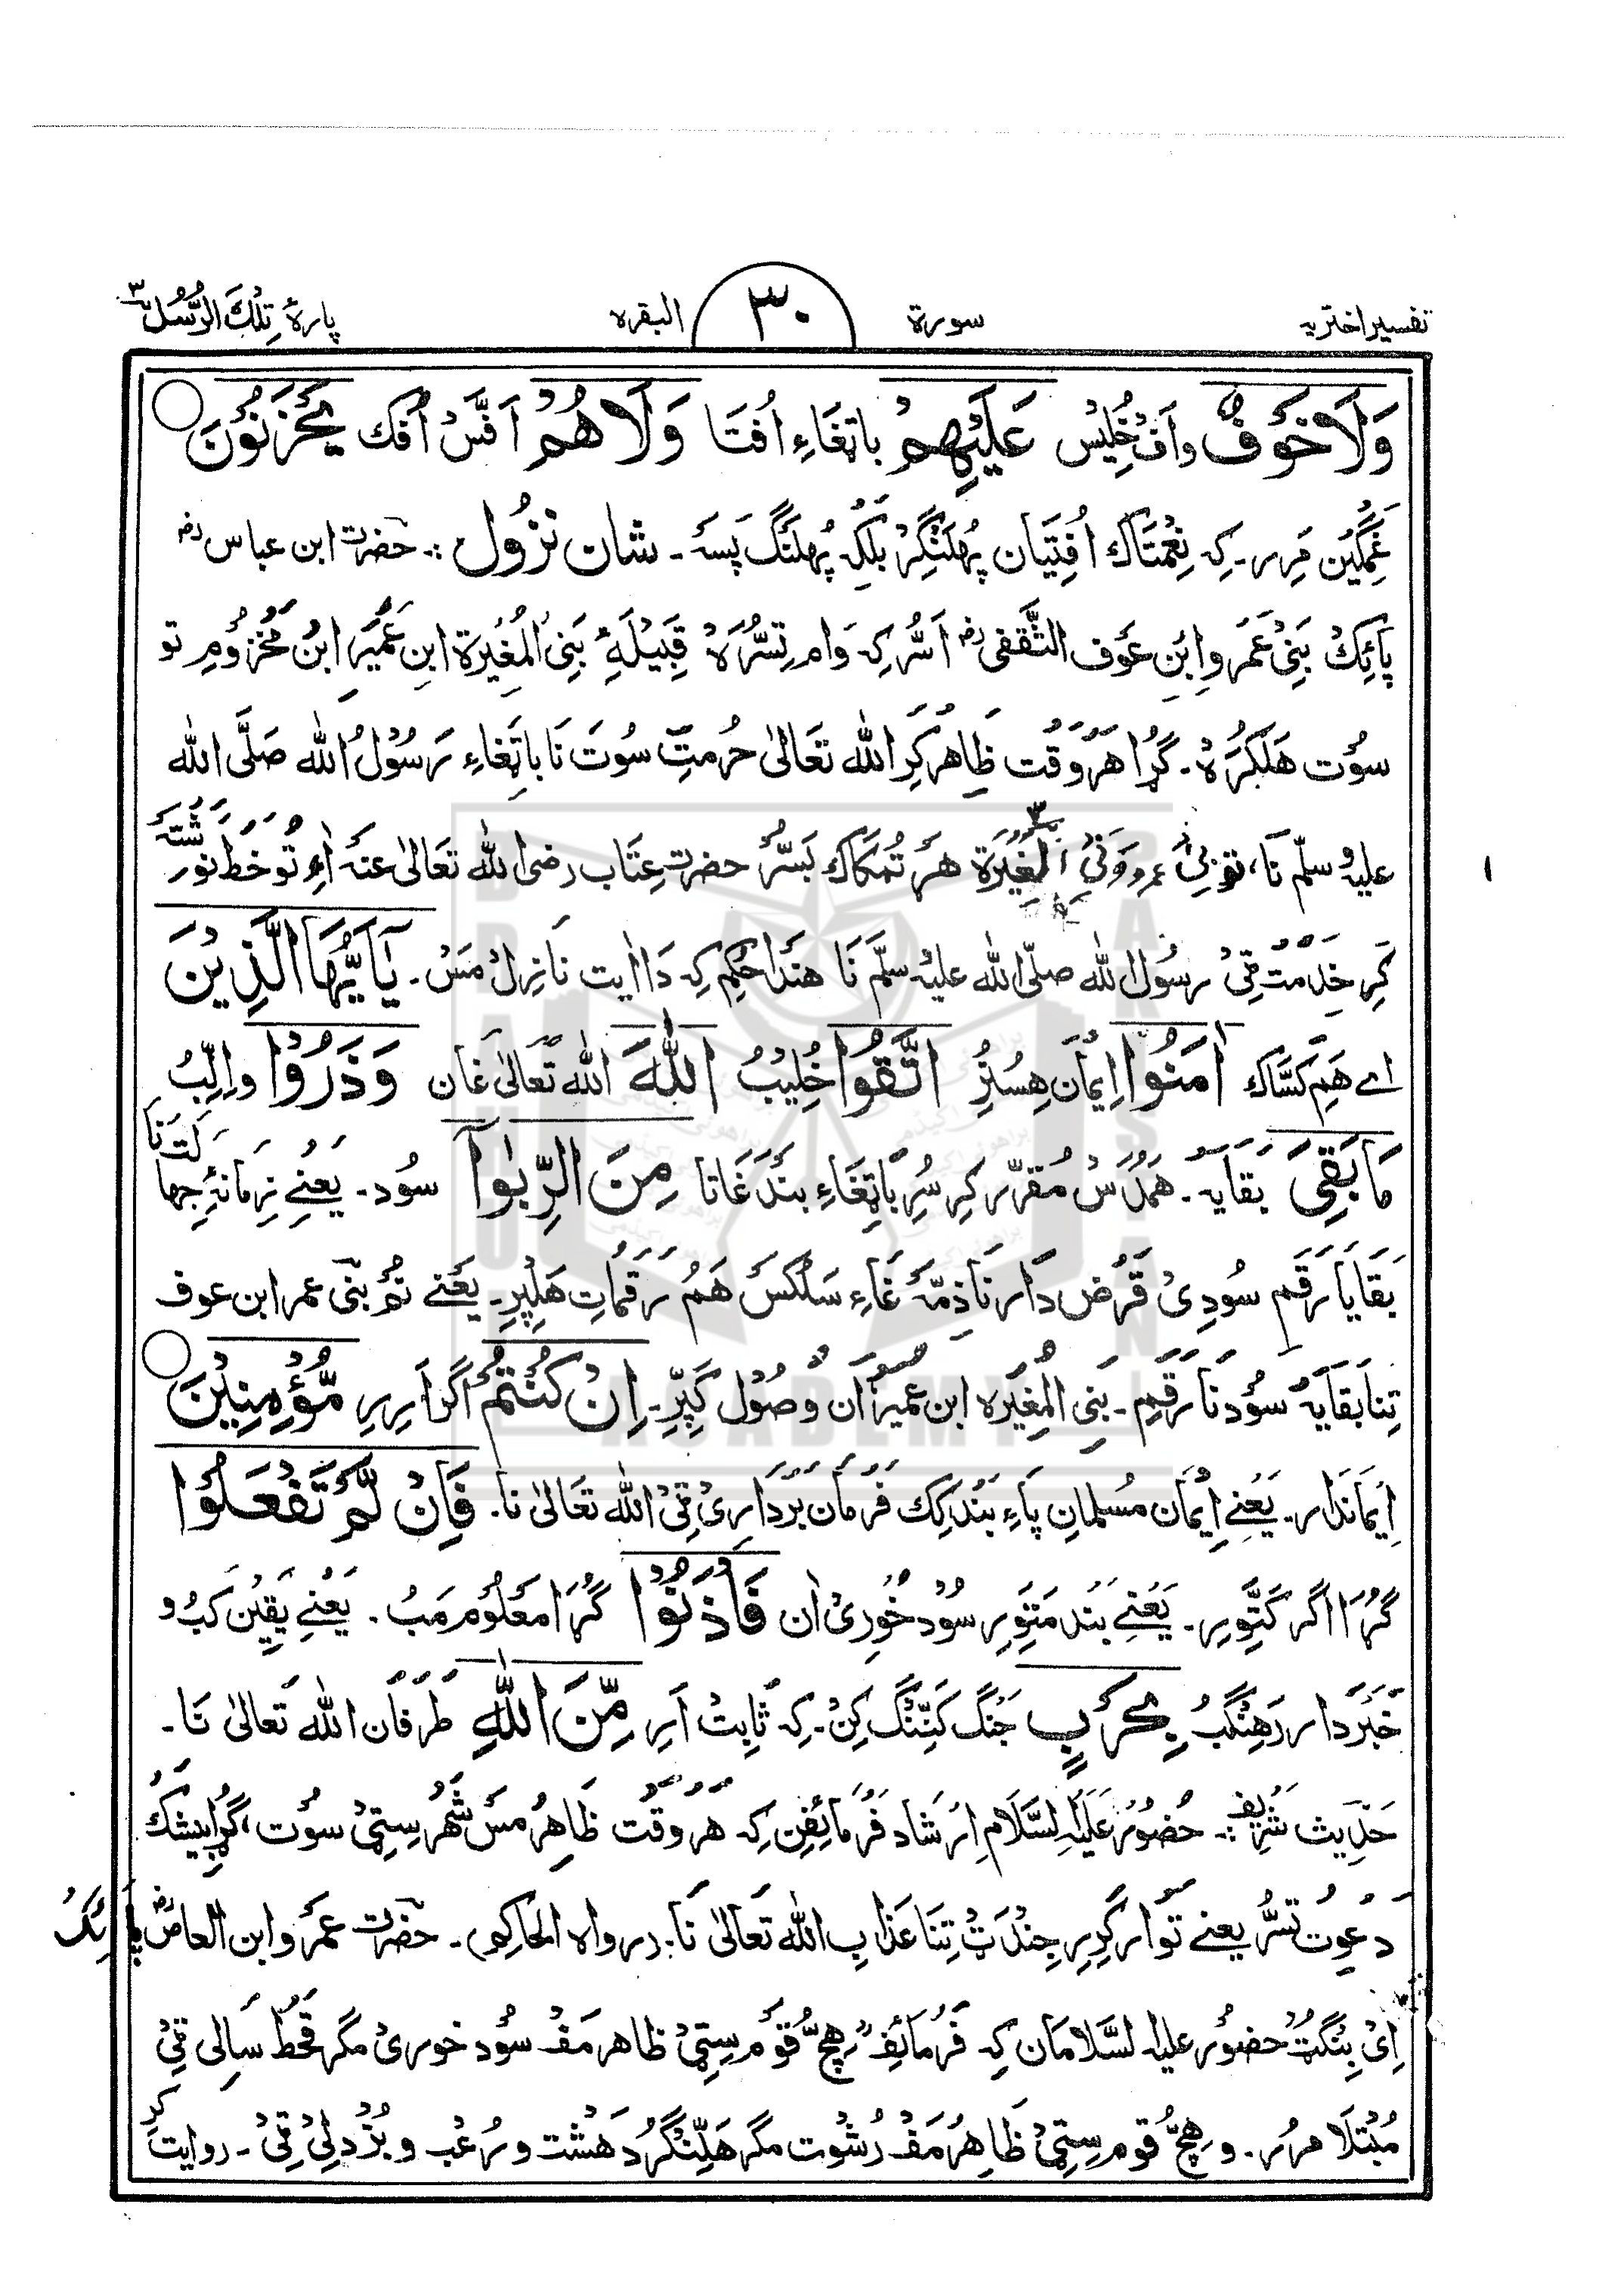 تفسیر اختریہ سورۃ ۳۰ البقرہ پارۂ تِلْكَ الرُّسُل ۳
وَلَا خَوْفٌ و اَف خُلِیس عَلَيْهِمْ باتِغَاءِ اُفتَا وَلَا هُمْ اَفَّسْ اُفک يَحْزَنُوْنَ
غَمگین مَرِر۔ کِہ نِعْمَتَاک اُفِتَیان پُهلِنْگِرْ بَلکِہ پُهلنگ پَسہ ۔ شان نزُول :۔ حضرت ابن عباس رض
پَائِکْ بَنِیْ عَمَر و اِبْنِ عَوف الثَّقفی رض اَسُّر کِہ وَام تِسُّرَہْ قَبِیْلَہِٴ بَنِی المُغِیْرَۃ ابنِ عُمَیْر ابنُ مَخْزُومِ تو
سوُت هَلکُرَہْ۔ گُڑا هَرْوَقْت ظَاهر کَرِ اللّٰه تَعَالیٰ حُرمتِ سوُت نَا باتِغَاءِ رَسُوْلُ اللّٰه صَلَّی اللّٰه
علیہِ سلّم نَا، تو بَنِیْ عمرو وَ بَنِیْ المُغِیْرَۃ هَر تُمَکاک بَسُّر حضرت عِتَاب رضی اللّٰه تعَالیٰ عنہ اءِ تو خط نوِشتہ
کَرِ خِدْمَت قِیْ رسُول اللّٰه صلّی اللّٰه علیہِ سلَّم نَا هندا حُکِم کِہ دَا اٰیت نَازِل مَسْ۔ يَاَيُّهَا الَّذِيْنَ
اے هَم کسَّاک اٰمَنُوْا اِیمَان هِسُنِرْ اتَّقُوا خُلِیْبُ اللّٰهَ اللّٰه تَعَالیٰ غَان وَذَرُوْا و اِلِّبُ
مَا بَقِیَ بَقَایَہ ۔ هَمُدَسْ مُقرّر کرِسُر بَاتِغَاءِ بندَغَاتَا مِنَ الرِّبٰوا سُود۔ یَعْنِے زَمَانۂِ جهالَت نَا
بَقَایَا رَقَم سُودِیْ قَرض دَار نَا ذِمّہ غَاءِ سَلُکسَ هَمُ رَقمَاتِ هَلِپِر۔ یَعْنے نُم بَنِی عمر ابن عوف
تِنَا بقایَہ سوُد نَا رَقم ۔ بَنِی المُغِیْرہ ابن عمیر آن وصُوْل کَپِر۔ اِنْ كُنْتُمْ اگر اَرِر مُّؤْمِنِيْنَ
اِیْمَاندَار۔ یَعْنے اِیْمَان مُسلمانِ پَاءِ بَنْدَکِک فَرمَان بَردَاریْ قِیْ اللّٰه تعَالیٰ نا۔ فَاِنْ لَّمْ تَفْعَلُوْا
گُڑا اگر کَتَّوِیر ۔ یَعْنِے بَند مَتَوِیرِ سُوْد خُورِیْ اٰن فَاْذَنُوْا گُڑا مَعلُوم مَبُ ۔ یَعْنے یَقِین کَبُ و
خَبَردَار رَهِنْگبُ بِحَرْبٍ جَنْگ کَنِنگ کِنْ۔ کِہ ثَابِتْ اَرِ مِّنَ اللّٰهِ طَرفَان اللّٰه تَعالیٰ نَا۔
حَدِیث شَرِیْف :۔ حُضُوْر عَلَیہِ السَّلَام اِرْشاد فَرمَائِفِن کِہ هَر وَقْت ظَاهِرْ مَس شَهر سِتِیْ سوُت، گُڑا بِیشَک
دَعِوُت تِسُّر یعنے تَوار کَرِیر جِنْدَ تِنَا عَذابِ اللّٰه تَعَالیٰ نَا۔ (رواہ الحاکم)۔ حضرت عمر و ابن العاصؓ پَائِکُ
اِیْ بِنْگُتْ حضوُر علیہ السَّلامان کِہ فَرمَائف هِچُّ قوُم سِتِیْ ظاهر مَف سوُد خوریْ مگر قَحط سَالِی قِیْ
مُبْتَلَا مَرُر۔ و هِچُّ قوم سِتِیْ ظَاهِرْ مَف رُشوُت مگر هَلِّنگُر دَهْشت و رُعْب و بُزْدِلِیْ قِیْ ۔ روایت کَرِ